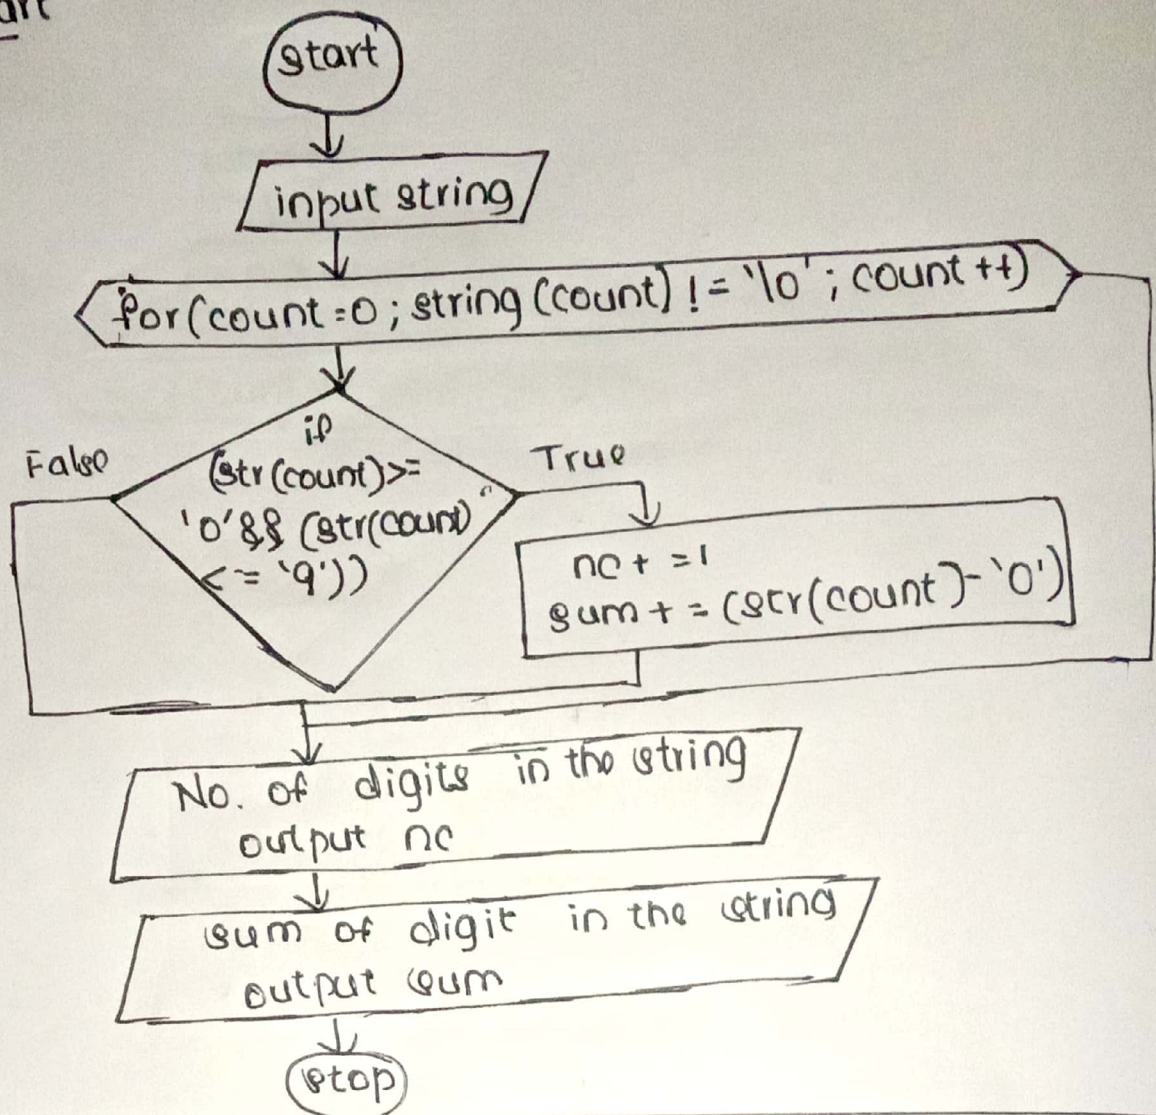 start
input string
for(count=0; string(count) != '\0'; count++)
if
(str(count)>=
False
True
'0'&& (str(count)
<= '9'))
nc+=1
sum+=(str(count)-'0')
No. of digits in the string
output nc
sum of digit in the string
output sum
stop